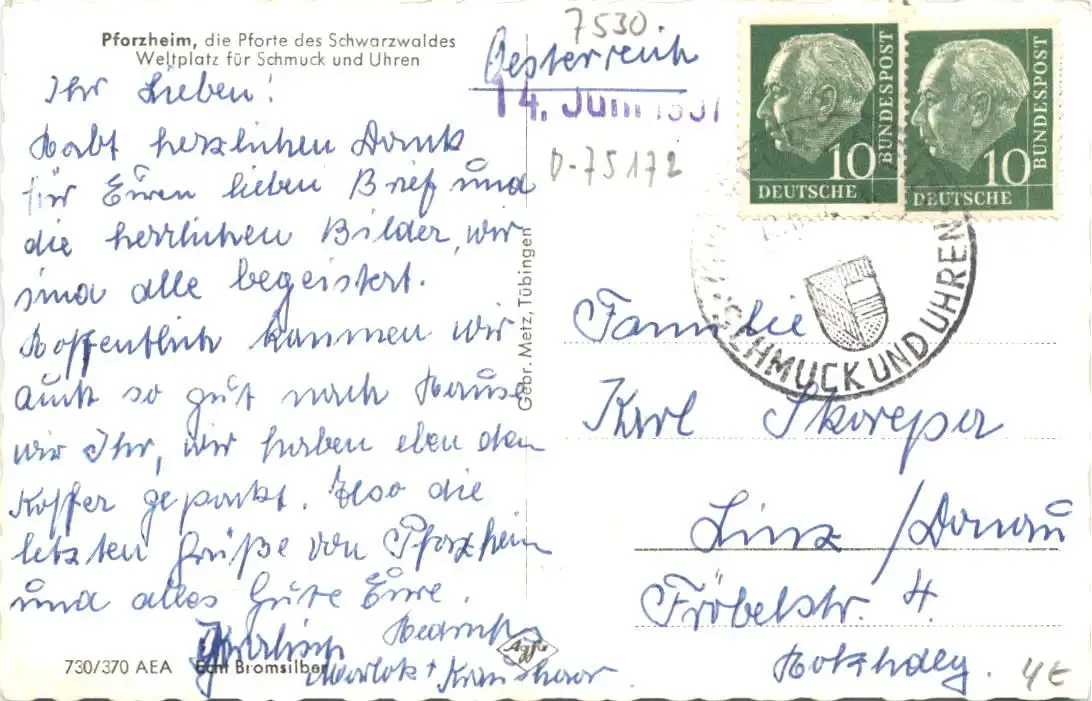 Pforzheim, die Pforte des Schwarzwaldes
Weltplatz für Schmuck und Uhren
Ihr Lieben!
Habt herzlichen Dank
für Euren lieben Brief und
die herrlichen Bilder, wir
sind alle begeistert.
Hoffentlich kommen wir
auch so gut nach Hause
wir Ihr, wir haben eben den
Koffer gepackt. Also die
letzten Grüße von Pforzheim
und alles Gute Eure.
730/370 AEA Echt Bromsilber
Agfa
Gebr. Metz, Tübingen
7530
Oesterreich
14. Juni 1957
D-75172
10
DEUTSCHE
BUNDESPOST
10
DEUTSCHE
BUNDESPOST
SCHMUCK UND UHREN
Familie
Karl Skoreper
Linz / Donau
Fröbelstr. 4
4€